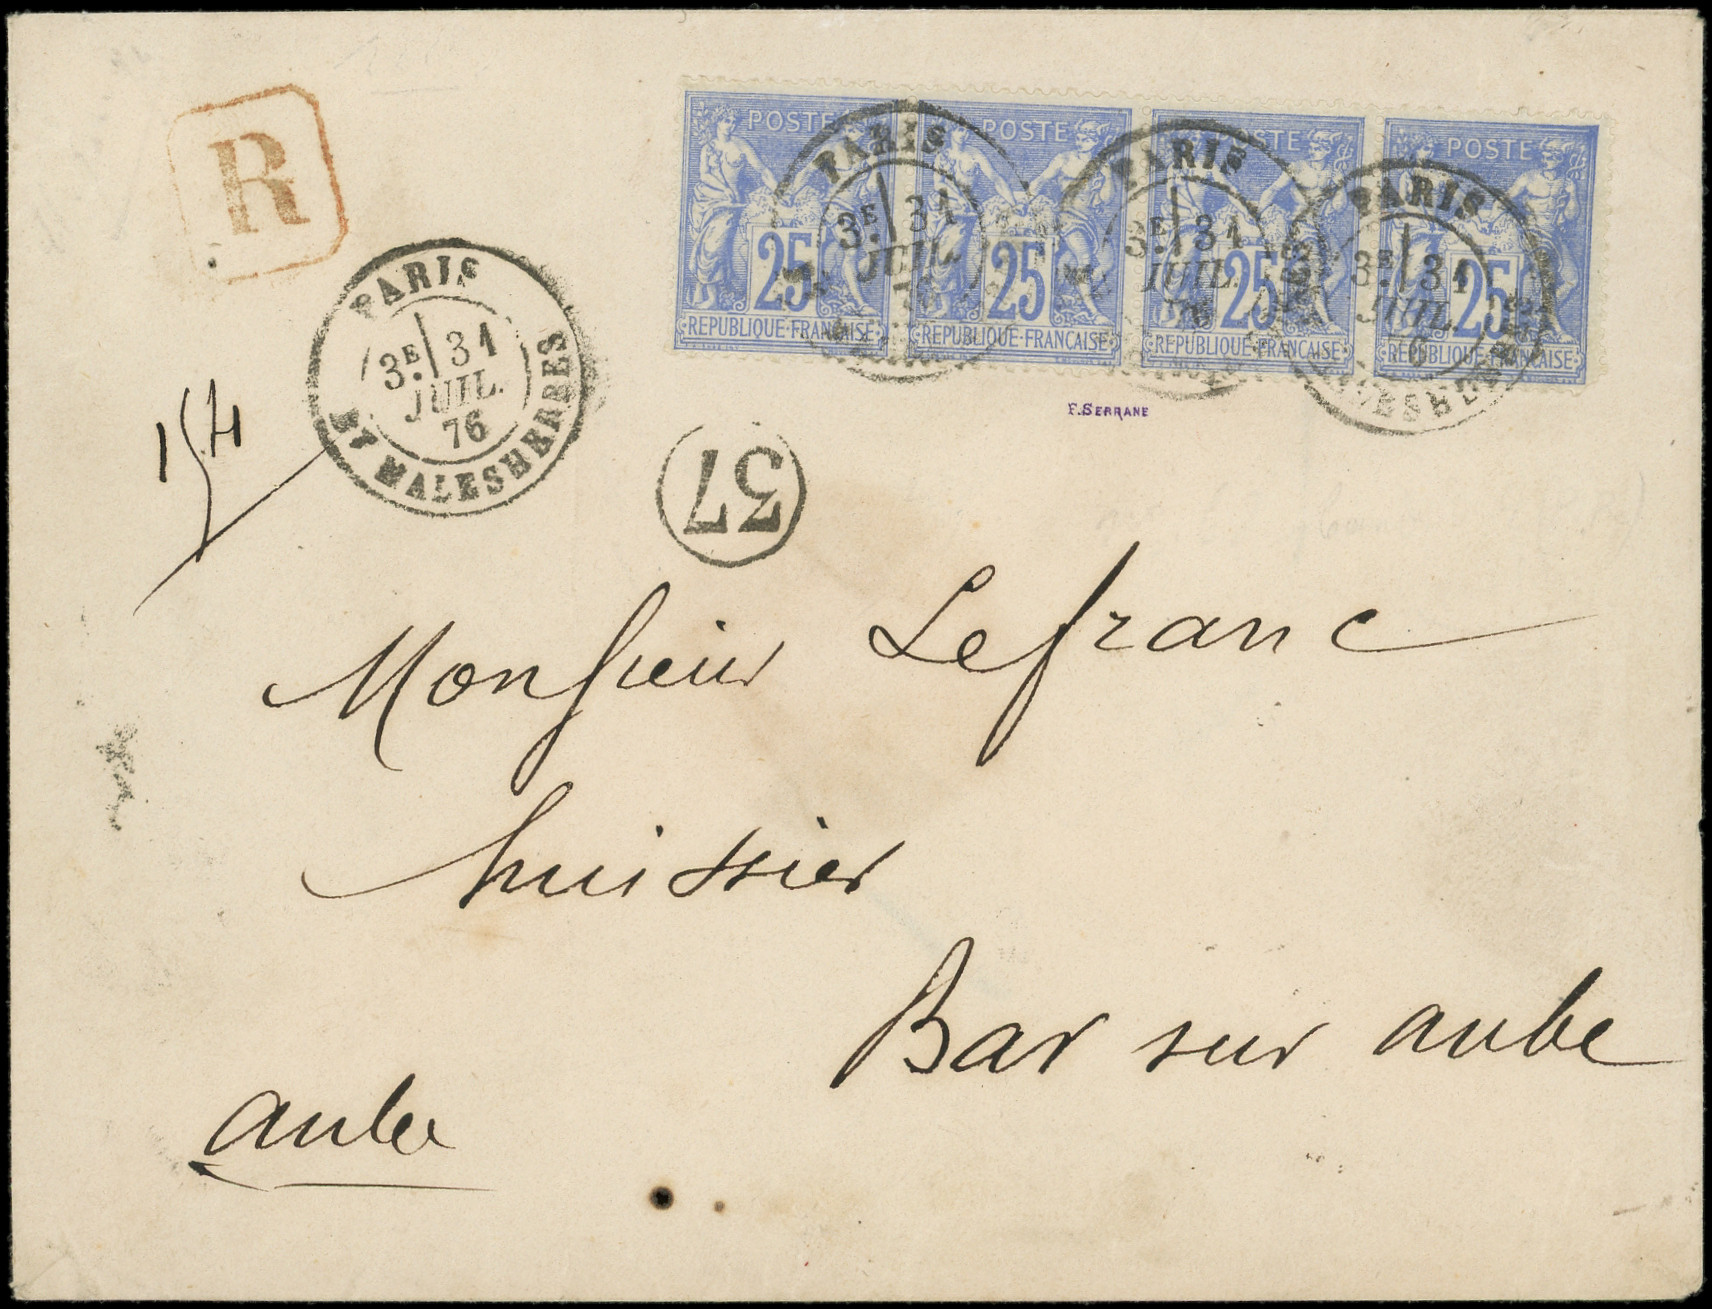 R
POSTE POSTE POSTE POSTE
25 25 25 25
REPUBLIQUE FRANÇAISE REPUBLIQUE FRANÇAISE REPUBLIQUE FRANÇAISE REPUBLIQUE FRANÇAISE
PARIS
3E 31
JUIL.
PARIS
3E 31
JUIL.
76
PARIS
3E 31
JUIL.
76
MALESHERBES
PARIS
3E 31
JUIL.
76
Bt MALESHERBES
F. SERRANE
154
37
Monsieur Lefranc
huissier
Bar sur aube
aube